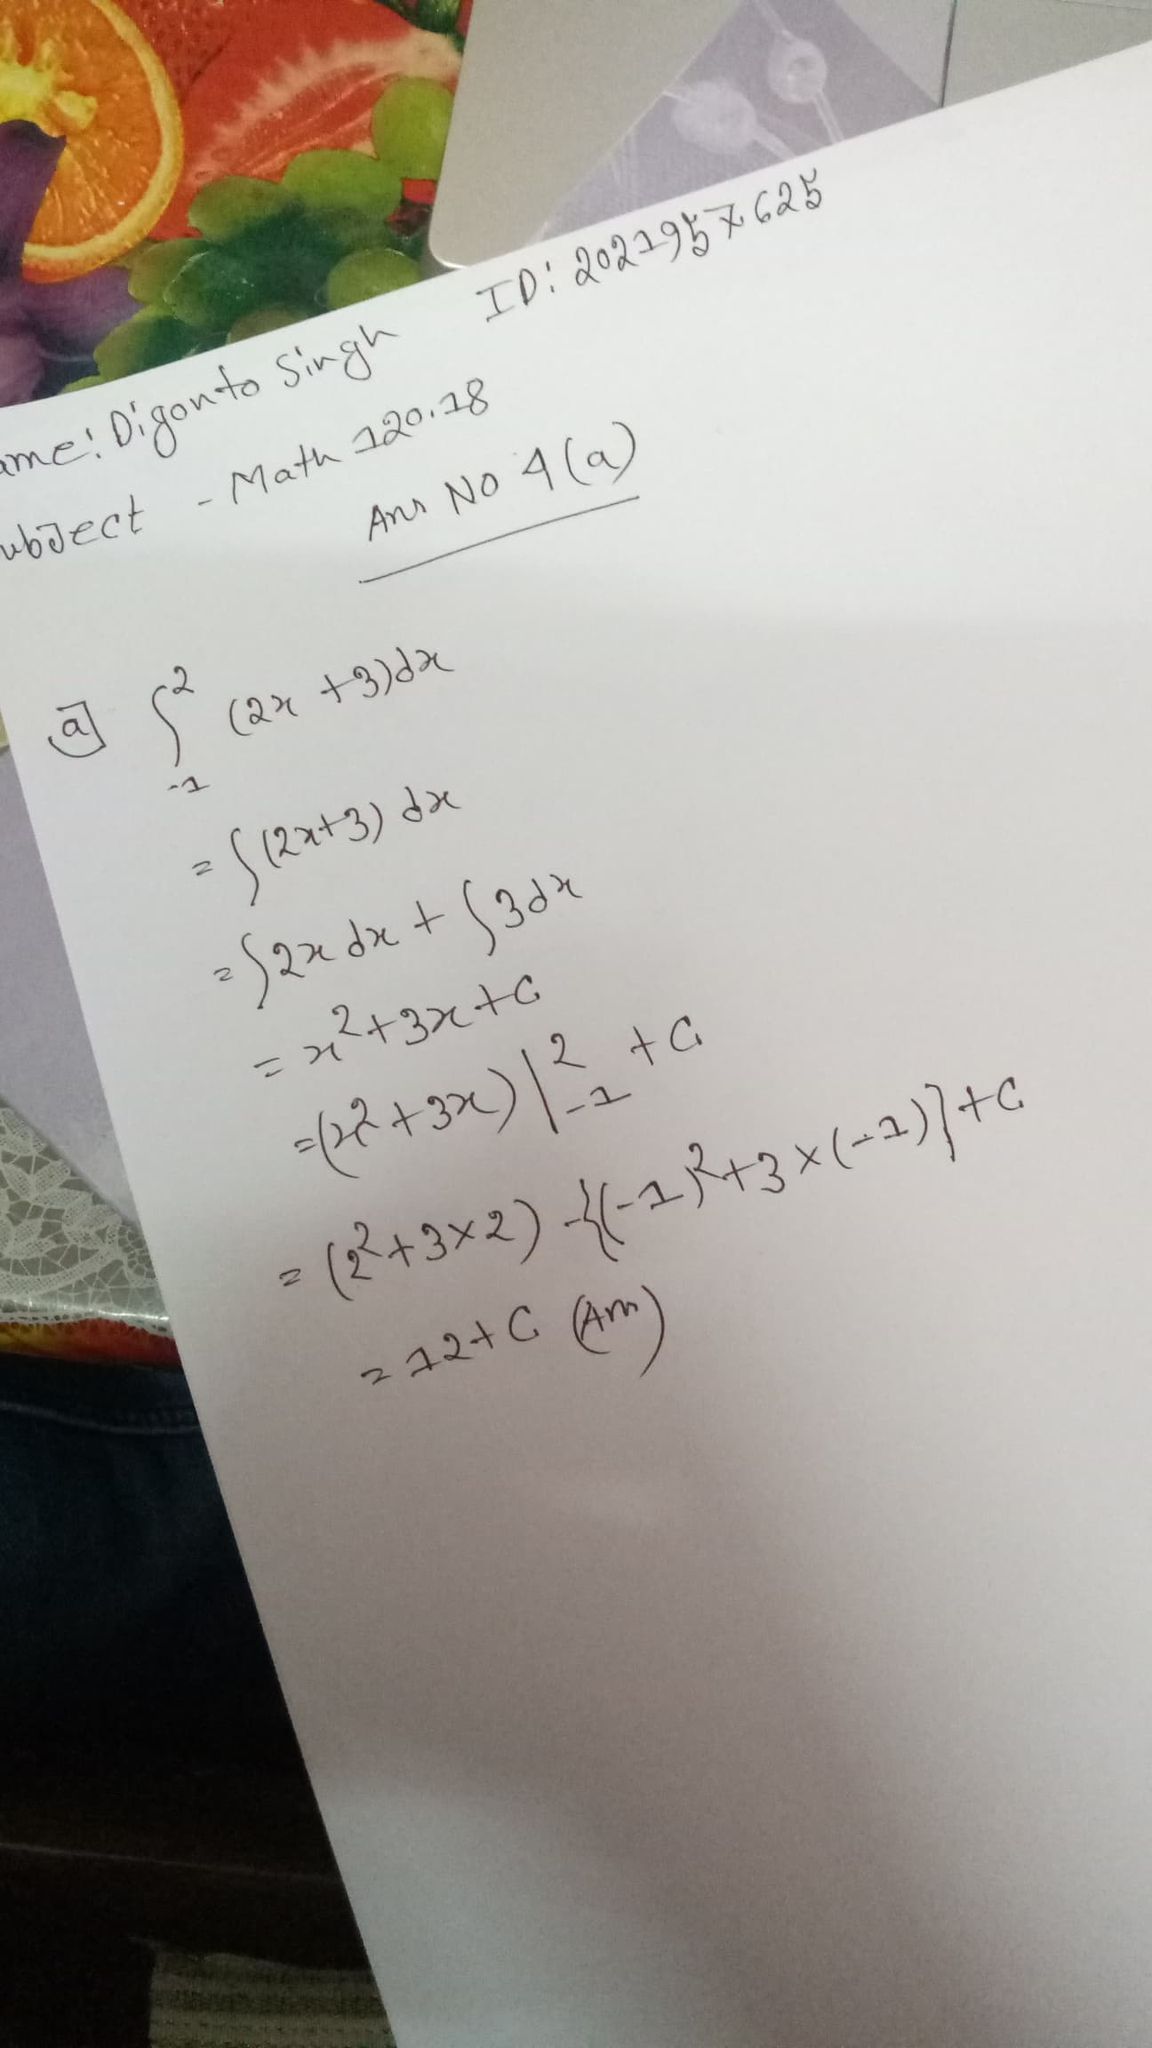 ame: Digonto Singh ID: 2021957625
ubject - Math 120.18
Ans No 4(a)
a] ∫₋₁² (2x+3)dx
= ∫(2x+3) dx
= ∫2x dx + ∫3dx
= x²+3x+C
= (x²+3x)|₋₁² + C
= (2²+3×2) - {(-1)²+3×(-1)}+C
= 12+C (Ans)